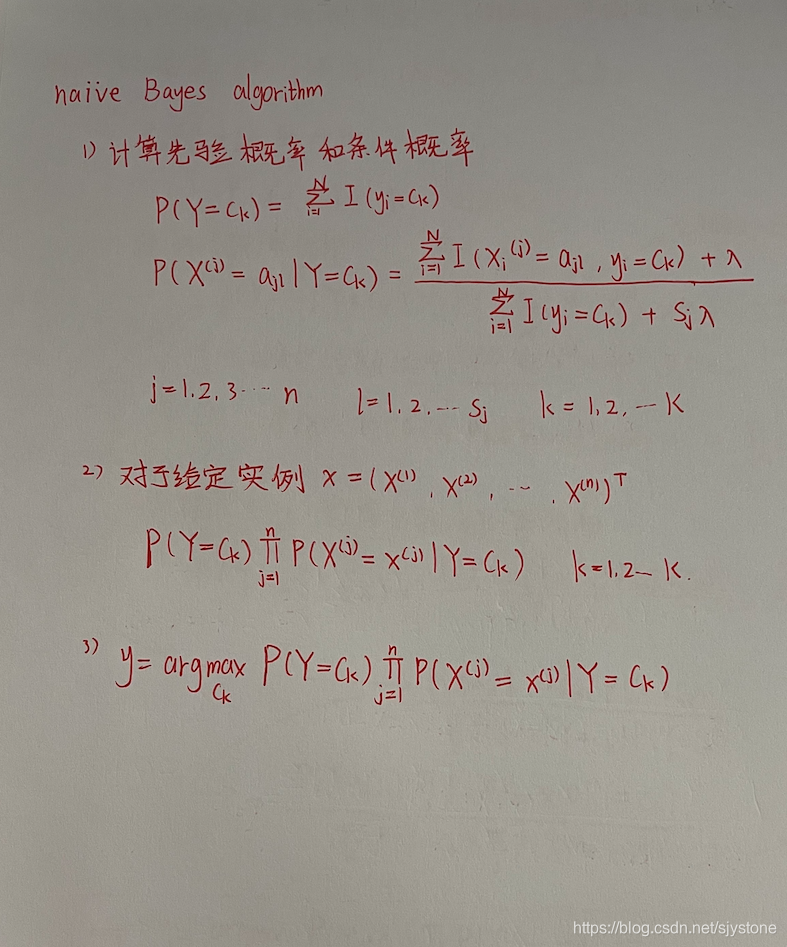 naive Bayes algorithm
1) 计算先验概率和条件概率
P(Y=Ck) = ∑_{i=1}^{N} I(yi=Ck)
P(X^(j) = a_jl | Y=Ck) = (∑_{i=1}^{N} I(Xi^(j) = a_jl , yi=Ck) + λ) / (∑_{i=1}^{N} I(yi=Ck) + Sjλ)
j=1,2,3… n l=1,2,… Sj k=1,2,…K
2) 对于给定实例 x=(x^(1), x^(2), …, x^(n))^T
P(Y=Ck) ∏_{j=1}^{n} P(X^(j)=x^(j)|Y=Ck) k=1,2…K.
3) y= argmax_{Ck} P(Y=Ck) ∏_{j=1}^{n} P(X^(j)=x^(j)|Y=Ck)
https://blog.csdn.net/sjystone